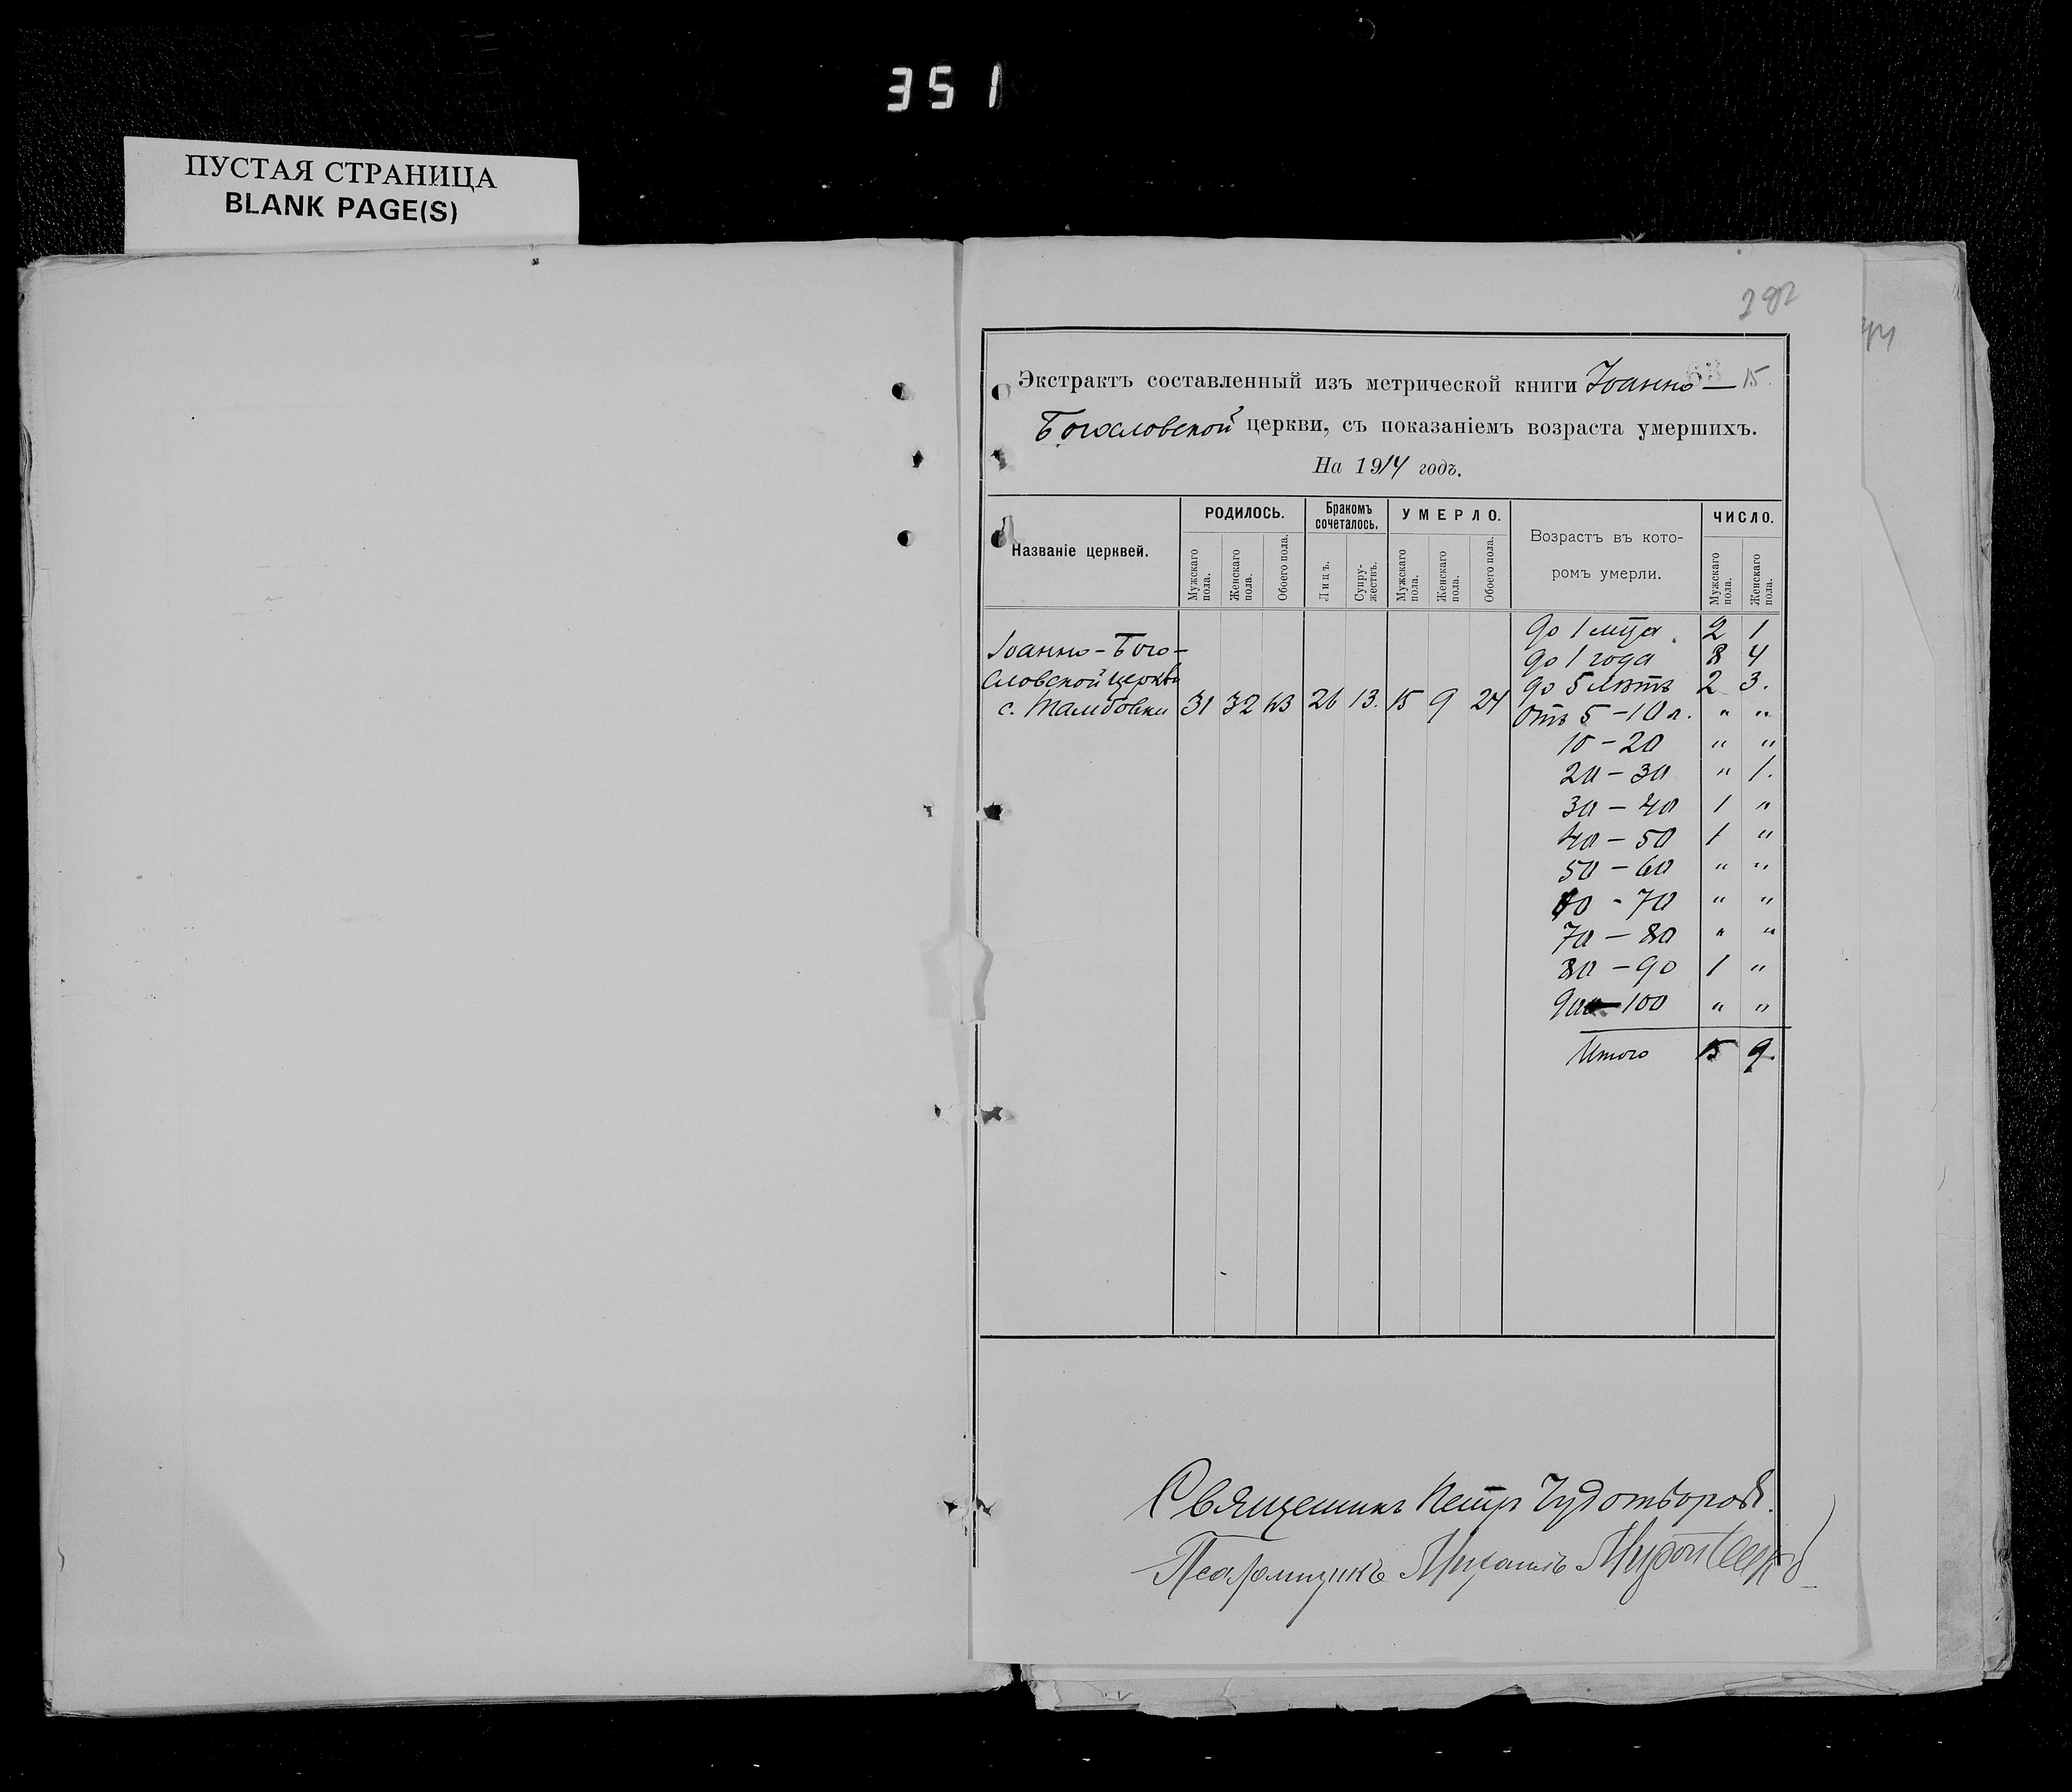 351
ПУСТАЯ СТРАНИЦА
BLANK PAGE(S)
Экстрактъ составленный изъ метрической книги Іоанно — 15.
Богословской церкви, съ показаніемъ возраста умершихъ.
На 1914 годъ.
Названіе церквей.
РОДИЛОСЬ.
Мужскаго пола.
Женскаго пола.
Обоего пола.
Бракомъ сочеталось.
Лицъ.
Супружествъ.
УМЕРЛО.
Мужскаго пола.
Женскаго пола.
Обоего пола.
Возрастъ въ которомъ умерли.
ЧИСЛО.
Мужскаго пола.
Женскаго пола.
до 1 мца. 2 1
Іоанно-Бого-
до 1 года 8 4
словской церкви
до 5 лѣтъ 2 3.
с. Тамбовки 31 32 63 26 13. 15 9 24
отъ 5-10 л. " "
10-20 " "
20-30 " 1.
30-40 1 "
40-50 1 "
50-60 " "
60-70 " "
70-80 " "
80-90 1 "
90-100 " "
Итого 15 9.
Священникъ Петръ Чудотворовъ.
Псаломщикъ Михаилъ